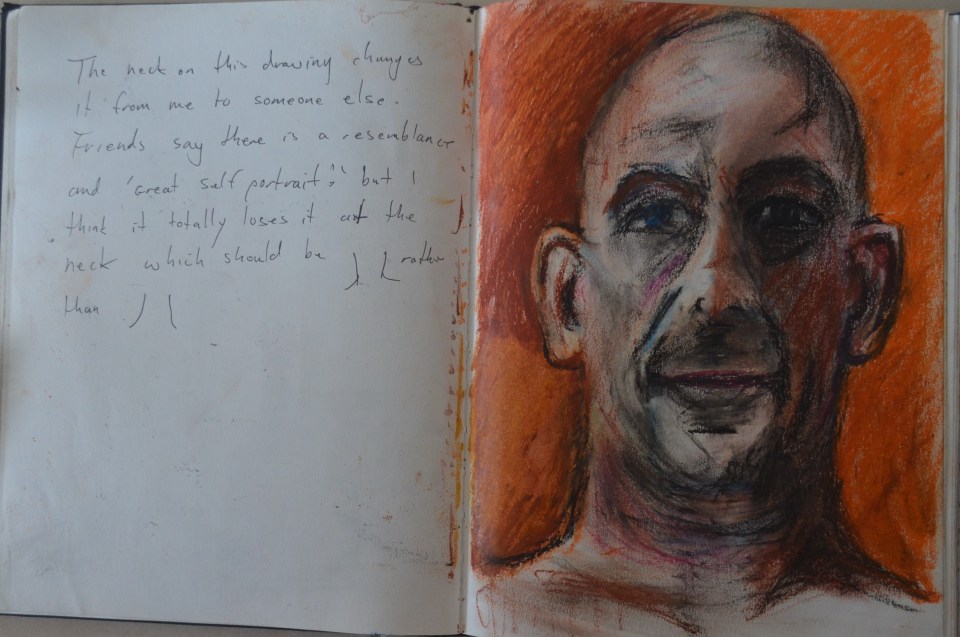 The neck on this drawing changes
it from me to someone else.
Friends say there is a resemblance
and 'Great self portrait!' but I
think it totally loses it at the
neck which should be ) ( rather
than ) (